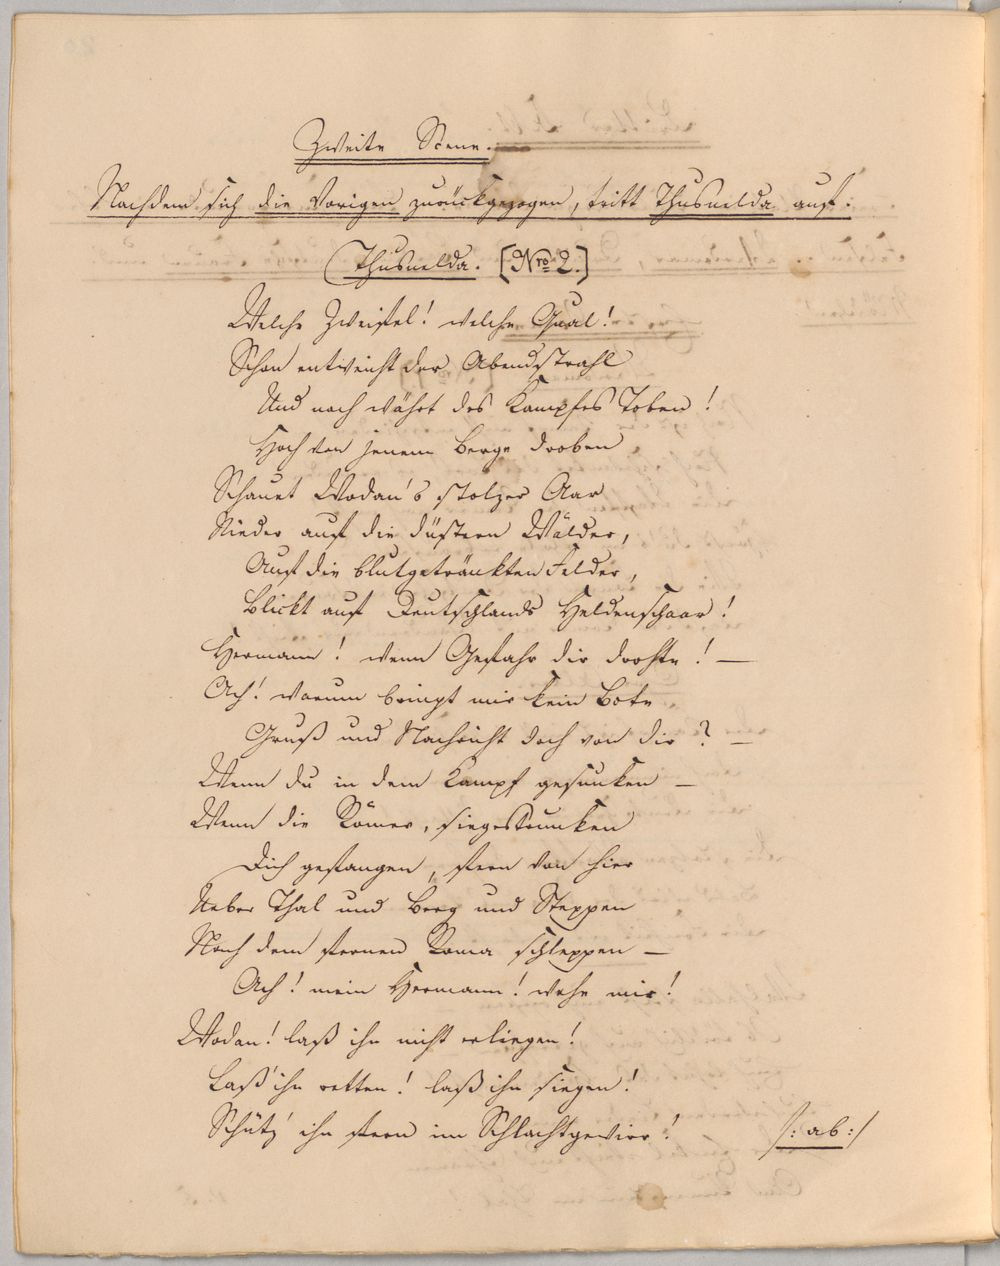 Zweite Scene.
Nachdem sich die Vorigen zurückgezogen, tritt Thusnelda auf.
Thusnelda. [Nro 2.]
Welche Zweifel! welche Quaal!
Schon entweicht der Abendstrahl
Und noch währt des Kampfes Toben!
Hoch von jenem Berge droben
Schauet Wodan's stolzer Aar
Nieder auf die düstern Wälder,
Auf die blutgetränkten Felder,
Blickt auf Deutschlands Heldenschaar!
Hermann! wenn Gefahr dir drohte! —
Ach! warum bringt mir kein Bote
Gruß und Nachricht doch von dir? —
Wenn du in dem Kampf gesunken —
Wenn die Römer, siegestrunken
Dich gefangen, fern von hier
Ueber Thal und Berg und Steppen
Nach dem fernen Roma schleppen —
Ach! mein Hermann! wehe mir!
Wodan! laß ihn nicht erliegen!
Laß' ihn retten! laß ihn siegen!
Schütz' ihn fern im Schlachtgewirr! /: ab :/